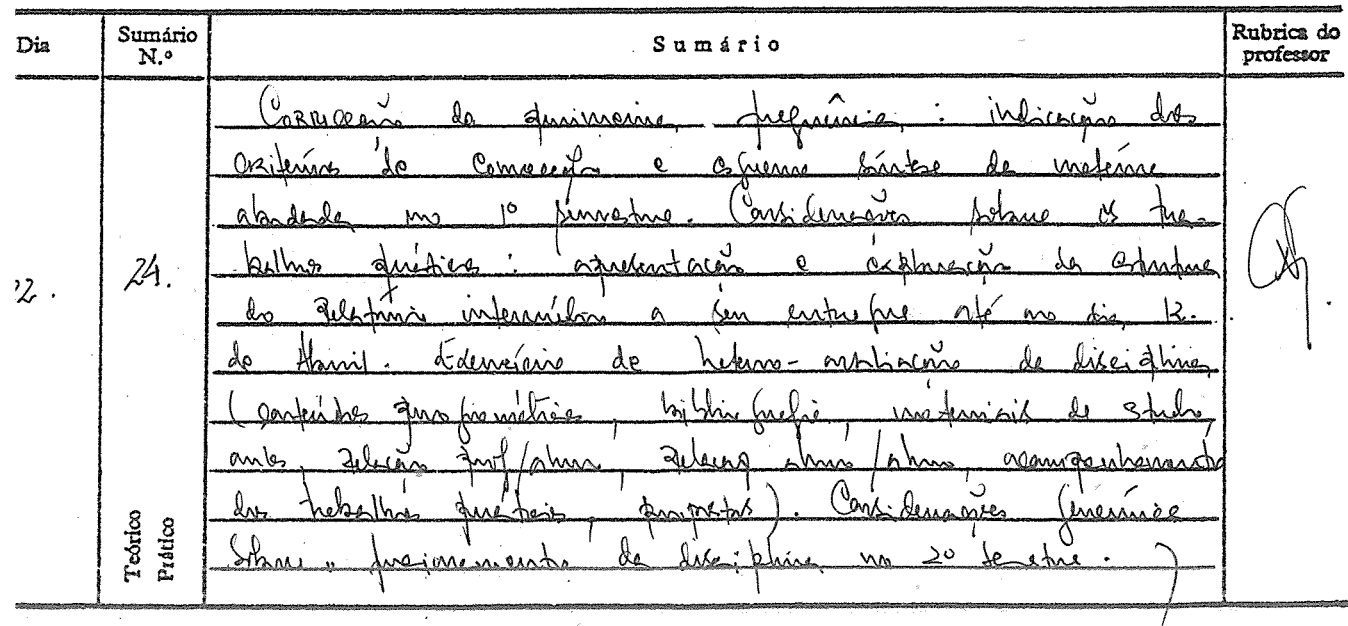 Dia
Sumário N.º
Sumário
Rubrica do professor
Correcção da primeira frequência : indicação dos
critérios de correcção e esquema síntese da matéria
abordada no 1º semestre. Considerações sobre os tra-
balhos práticos : apresentação e explicação da estrutura
2. 24.
do relatório intermédio a ser entregue até ao dia 12.
de Abril. Exercício de hetero-avaliação da disciplina
(conteúdos programáticos, bibliografia, materiais de estudo,
aulas, relação prof/aluno, relação aluno/aluno, acompanhamento
dos trabalhos práticos, propostas). Considerações genéricas
sobre o funcionamento da disciplina no 2º semestre.
Teórico
Prático